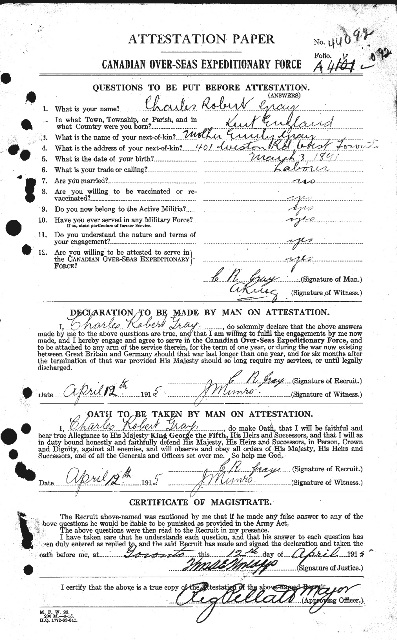 ATTESTATION PAPER
No. 44092
Folio.
CANADIAN OVER-SEAS EXPEDITIONARY FORCE
QUESTIONS TO BE PUT BEFORE ATTESTATION.
(ANSWERS)
1. What is your name? Charles Robert Gray
2. In what Town, Township, or Parish, and in what Country were you born? Kent England
3. What is the name of your next-of-kin? Mother Emily Gray
4. What is the address of your next-of-kin? 401 Weston Rd West Toronto
5. What is the date of your birth? March 3, 189
6. What is your trade or calling? Labourer
7. Are you married? no
8. Are you willing to be vaccinated or re-vaccinated? yes
9. Do you now belong to the Active Militia? yes
10. Have you ever served in any Military Force? yes
If so, state particulars of former Service.
11. Do you understand the nature and terms of your engagement? yes
12. Are you willing to be attested to serve in the CANADIAN OVER-SEAS EXPEDITIONARY FORCE? yes
C R Gray (Signature of Man.)
(Signature of Witness.)
DECLARATION TO BE MADE BY MAN ON ATTESTATION.
I, Charles Robert Gray, do solemnly declare that the above answers
made by me to the above questions are true, and that I am willing to fulfil the engagements by me now
made, and I hereby engage and agree to serve in the Canadian Over-Seas Expeditionary Force, and
to be attached to any arm of the service therein, for the term of one year, or during the war now existing
between Great Britain and Germany should that war last longer than one year, and for six months after
the termination of that war provided His Majesty should so long require my services, or until legally
discharged.
C R Gray (Signature of Recruit.)
Date April 12th 1915 J Munro (Signature of Witness.)
OATH TO BE TAKEN BY MAN ON ATTESTATION.
I, Charles Robert Gray, do make Oath, that I will be faithful and
bear true Allegiance to His Majesty King George the Fifth, His Heirs and Successors, and that I will as
in duty bound honestly and faithfully defend His Majesty, His Heirs and Successors, in Person, Crown
and Dignity, against all enemies, and will observe and obey all orders of His Majesty, His Heirs and
Successors, and of all the Generals and Officers set over me. So help me God.
C R Gray (Signature of Recruit.)
Date April 12th 1915 J Munro (Signature of Witness.)
CERTIFICATE OF MAGISTRATE.
The Recruit above-named was cautioned by me that if he made any false answer to any of the
above questions he would be liable to be punished as provided in the Army Act.
The above questions were then read to the Recruit in my presence.
I have taken care that he understands each question, and that his answer to each question has
been duly entered as replied to, and the said Recruit has made and signed the declaration and taken the
oath before me, at Toronto this 12th day of April 1915
(Signature of Justice.)
I certify that the above is a true copy of the Attestation of the above-named Recruit.
Reg Pellatt Major (Approving Officer.)